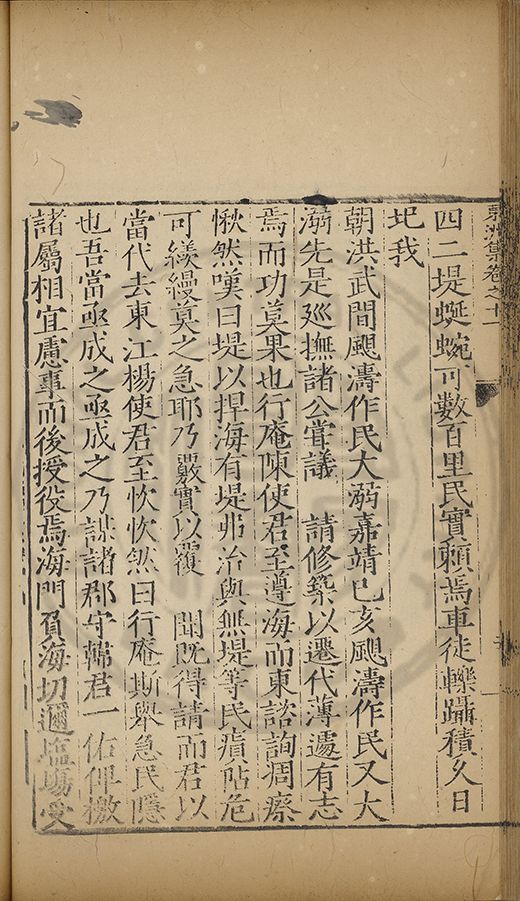 集卷之十一
四二堤蜒蜿可數百里民實頼焉車徒轢躡積久日
圮我
朝洪武間颶濤作民大溺嘉靖己亥颶濤作民又大
溺先是廵撫諸公甞議 請修築以遷代薄遽有志
焉而功莫果也行庵陳使君至遵海而東諮詢凋瘵
愀然嘆曰堤以捍海有堤弗治與無堤等民瘼阽危
可緩緩莫之急耶乃覈實以覆 聞既得請而君以
當代去東江楊使君至忺忺然曰行庵斯舉急民隱
也吾當亟成之亟成之乃謀諸郡守 君一佑俾檄
諸屬相宜慮事而後授役焉海門負海切邇塩塲受